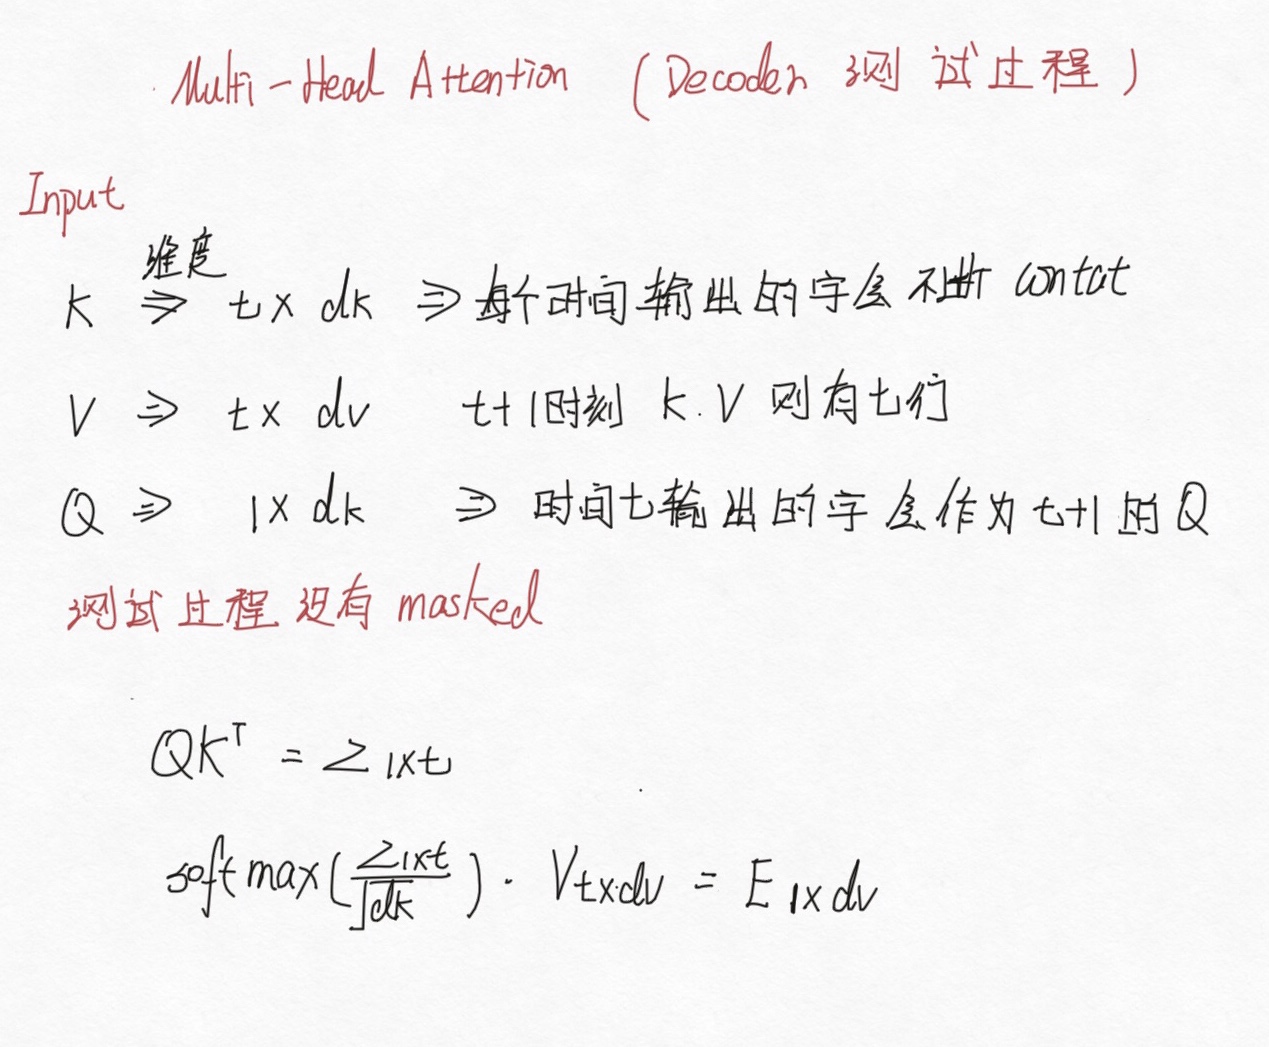 Multi-Head Attention (Decoder 测试过程)
Input
维度
K ⇒ t × dk ⇒ 每个时间输出的字会不断 contat
V ⇒ t × dv t+1时刻 K.V 则有t行
Q ⇒ 1 × dk ⇒ 时间t输出的字会作为t+1的Q
测试过程没有 masked
QKᵀ = Z 1×t
softmax(Z1×t/√dk) · Vt×dv = E 1×dv